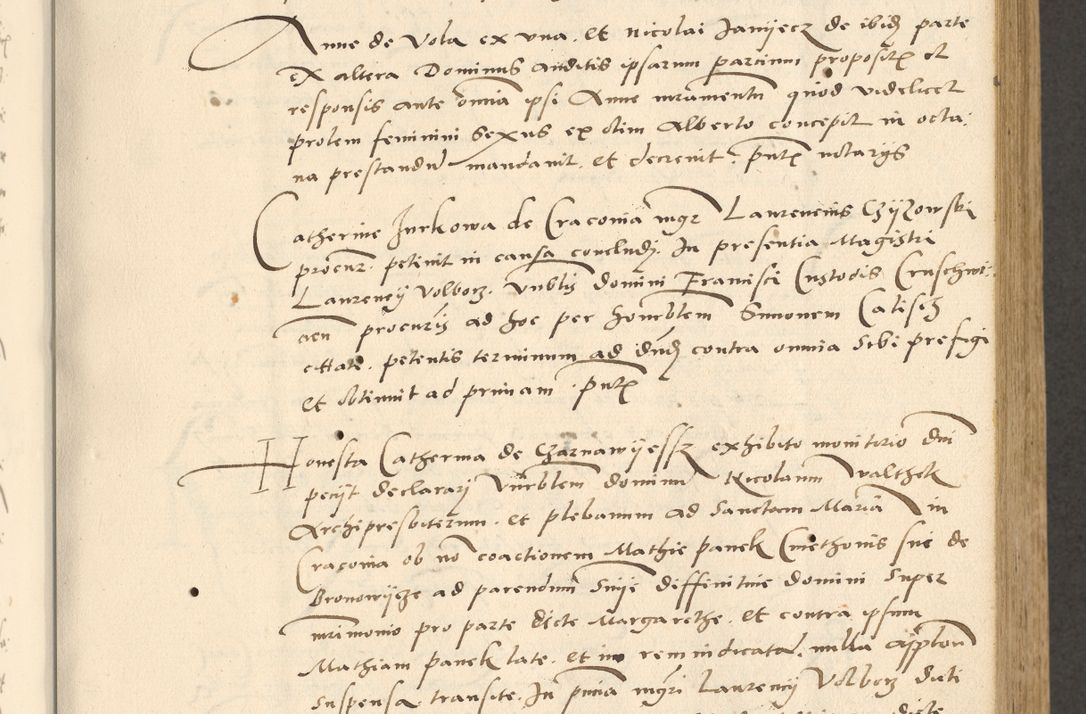 Anne de Vola ex vna. et Nicolai Janijecz de ibidz parte
ex altera Dominus auditis ipsarum parcium propositz et
responsis ante omnia ipsi Anne iuramentum quod videlicet
prolem feminini sexus ex olim Alberto concepit in octa:
na prestandum mandauit. et decreuit. pntz notarijs
Catherine Jurkowa de Cracouia mgr Laurencius Czijzowski
procur. petiuit in causa concludj. In presentia Magistri
Laurencij Volborz. Vnblis domini Francisci Custodis Cruschwi:
cen procuris ad hoc per honrblem Simonem Calisch
cttate. petentis terminum ad dndz contra omnia sibi prefigi
et obtinuit ad primam. pntz
Honesta Catherina de Czarnawijessz exhibito monitorio dni
petijt declararj Vnrblem dominum Nicolaum Walthek
Archipresbiterum. et plebanum ad Sanctam Mariam in
Cracouia ob no coactionem Mathie panek Cmethonis sue de
Bronowijcze ad parendum Snije diffinitiue domini super
mrimonio pro parte dicte Margarethe. et contra ipsum
Mathiam panek late. et in rem iudicatam. nulla applon
suspensa transite. In pntia mgri Laurencij Volborz dicti
dicte